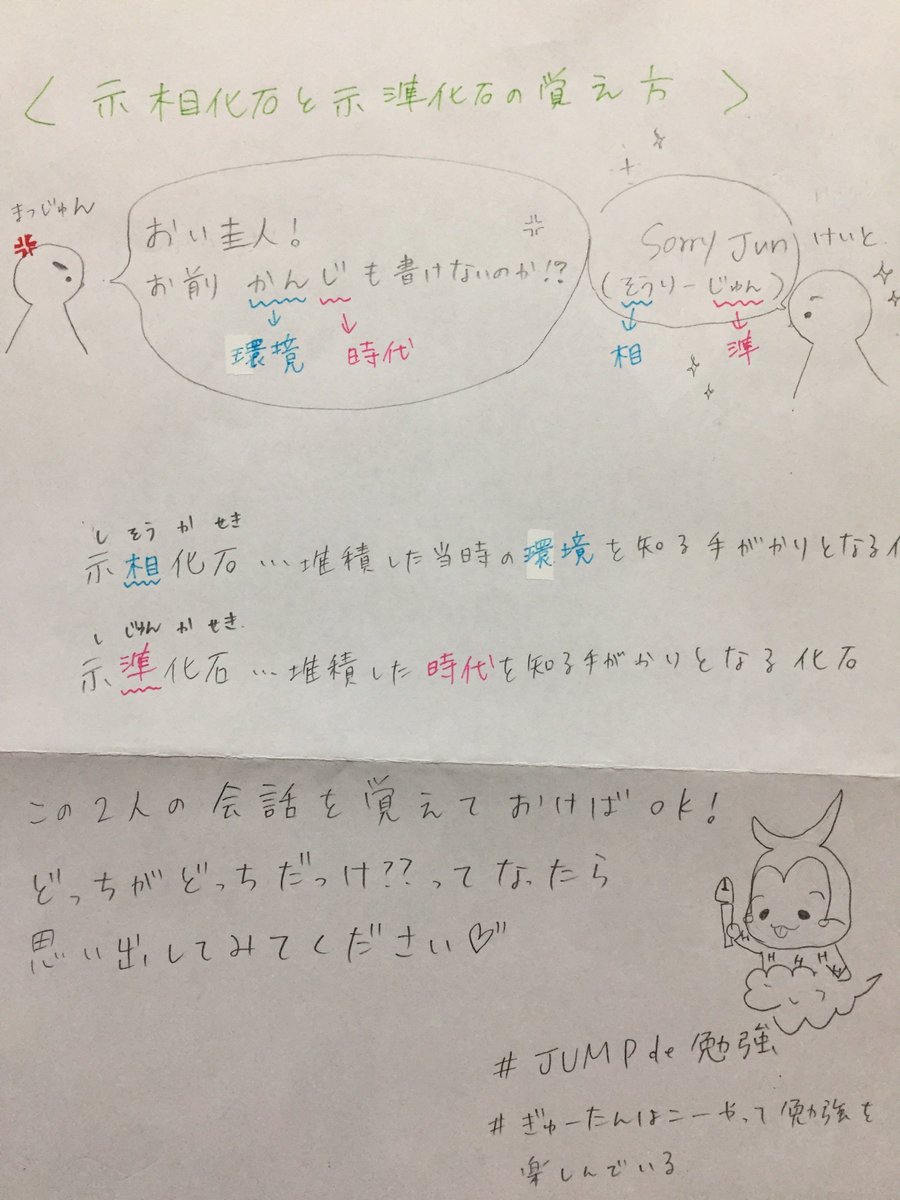 〈 示相化石と示準化石の覚え方 〉
まつじゅん
おい圭人!
お前 かんじも書けないのか!?
環境 時代
Sorry Jun
(そうりーじゅん)
相 準
けいと
し そう か せき
示相化石…堆積した当時の環境を知る手がかりとなる
し じゅん か せき
示準化石…堆積した時代を知る手がかりとなる化石
この2人の会話を覚えておけばOK!
どっちがどっちだっけ??ってなったら
思い出してみてください♡
#JUMPde勉強
#ぎゅーたんはこーやって勉強を
楽しんでいる